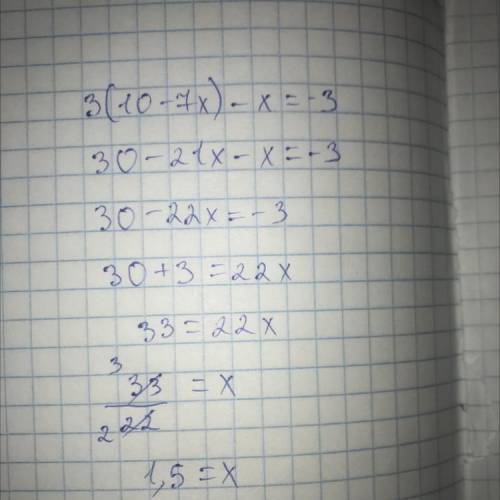 3(10-7x)-x=-3
30-21x-x=-3
30-22x=-3
30+3=22x
33=22x
3 33
2 22 =x
1,5=x